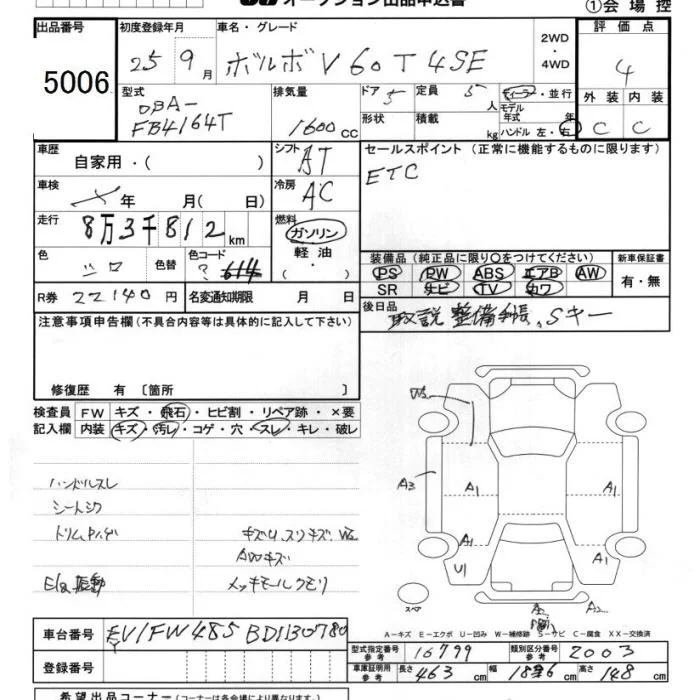 オークション出品申込書
①会場控
出品番号 初度登録年月 車名・グレード 評価点
5006 25 9月 ボルボ V60 T4SE 2WD・4WD 4
型式 排気量 ドア 定員 ディーラー・並行 外装 内装
DBA-
FB4164T 1600cc 5 5人 モデル年式 年 C C
形状 積載 kg ハンドル 左・右
車歴 シフト セールスポイント (正常に機能するものに限ります)
自家用・( ) AT ETC
車検 年 月( 日) 冷房 AC
走行 8万3千812km 燃料 ガソリン
軽油
( ・ )
色 シロ 色替 色コード ? 614
装備品 (純正品に限り○をつけてください) 新車保証書
PS PW ABS エアB AW 有・無
SR ナビ TV カワ
R券 22140円 名変通知期限 月 日
後日品 取説 整備手帳、Sキー
注意事項申告欄(不具合内容等は具体的に記入して下さい)
修復歴 有〔箇所 〕
検査員 FW キズ・飛石・ヒビ割・リペア跡・×要
記入欄 内装 キズ・汚レ・コゲ・穴・スレ・キレ・破レ
ハンドルスレ
シートシワ
キズU、スリキズ、
AWキズ
E/g 振動 メッキモールクモリ
A3 A1 A1
A1 A1
U1 A2
スペア
A-キズ E-エクボ U-凹み W-補修跡 S-サビ C-腐食 XX-交換済
車台番号 YV1FW485BD1130780
型式指定番号 参考 16799 類別区分番号 参考 2003
登録番号
車庫証明用 参考 長さ 463cm 幅 186cm 高さ 148cm
希望出品コーナー (コーナーは各会場により異なります)